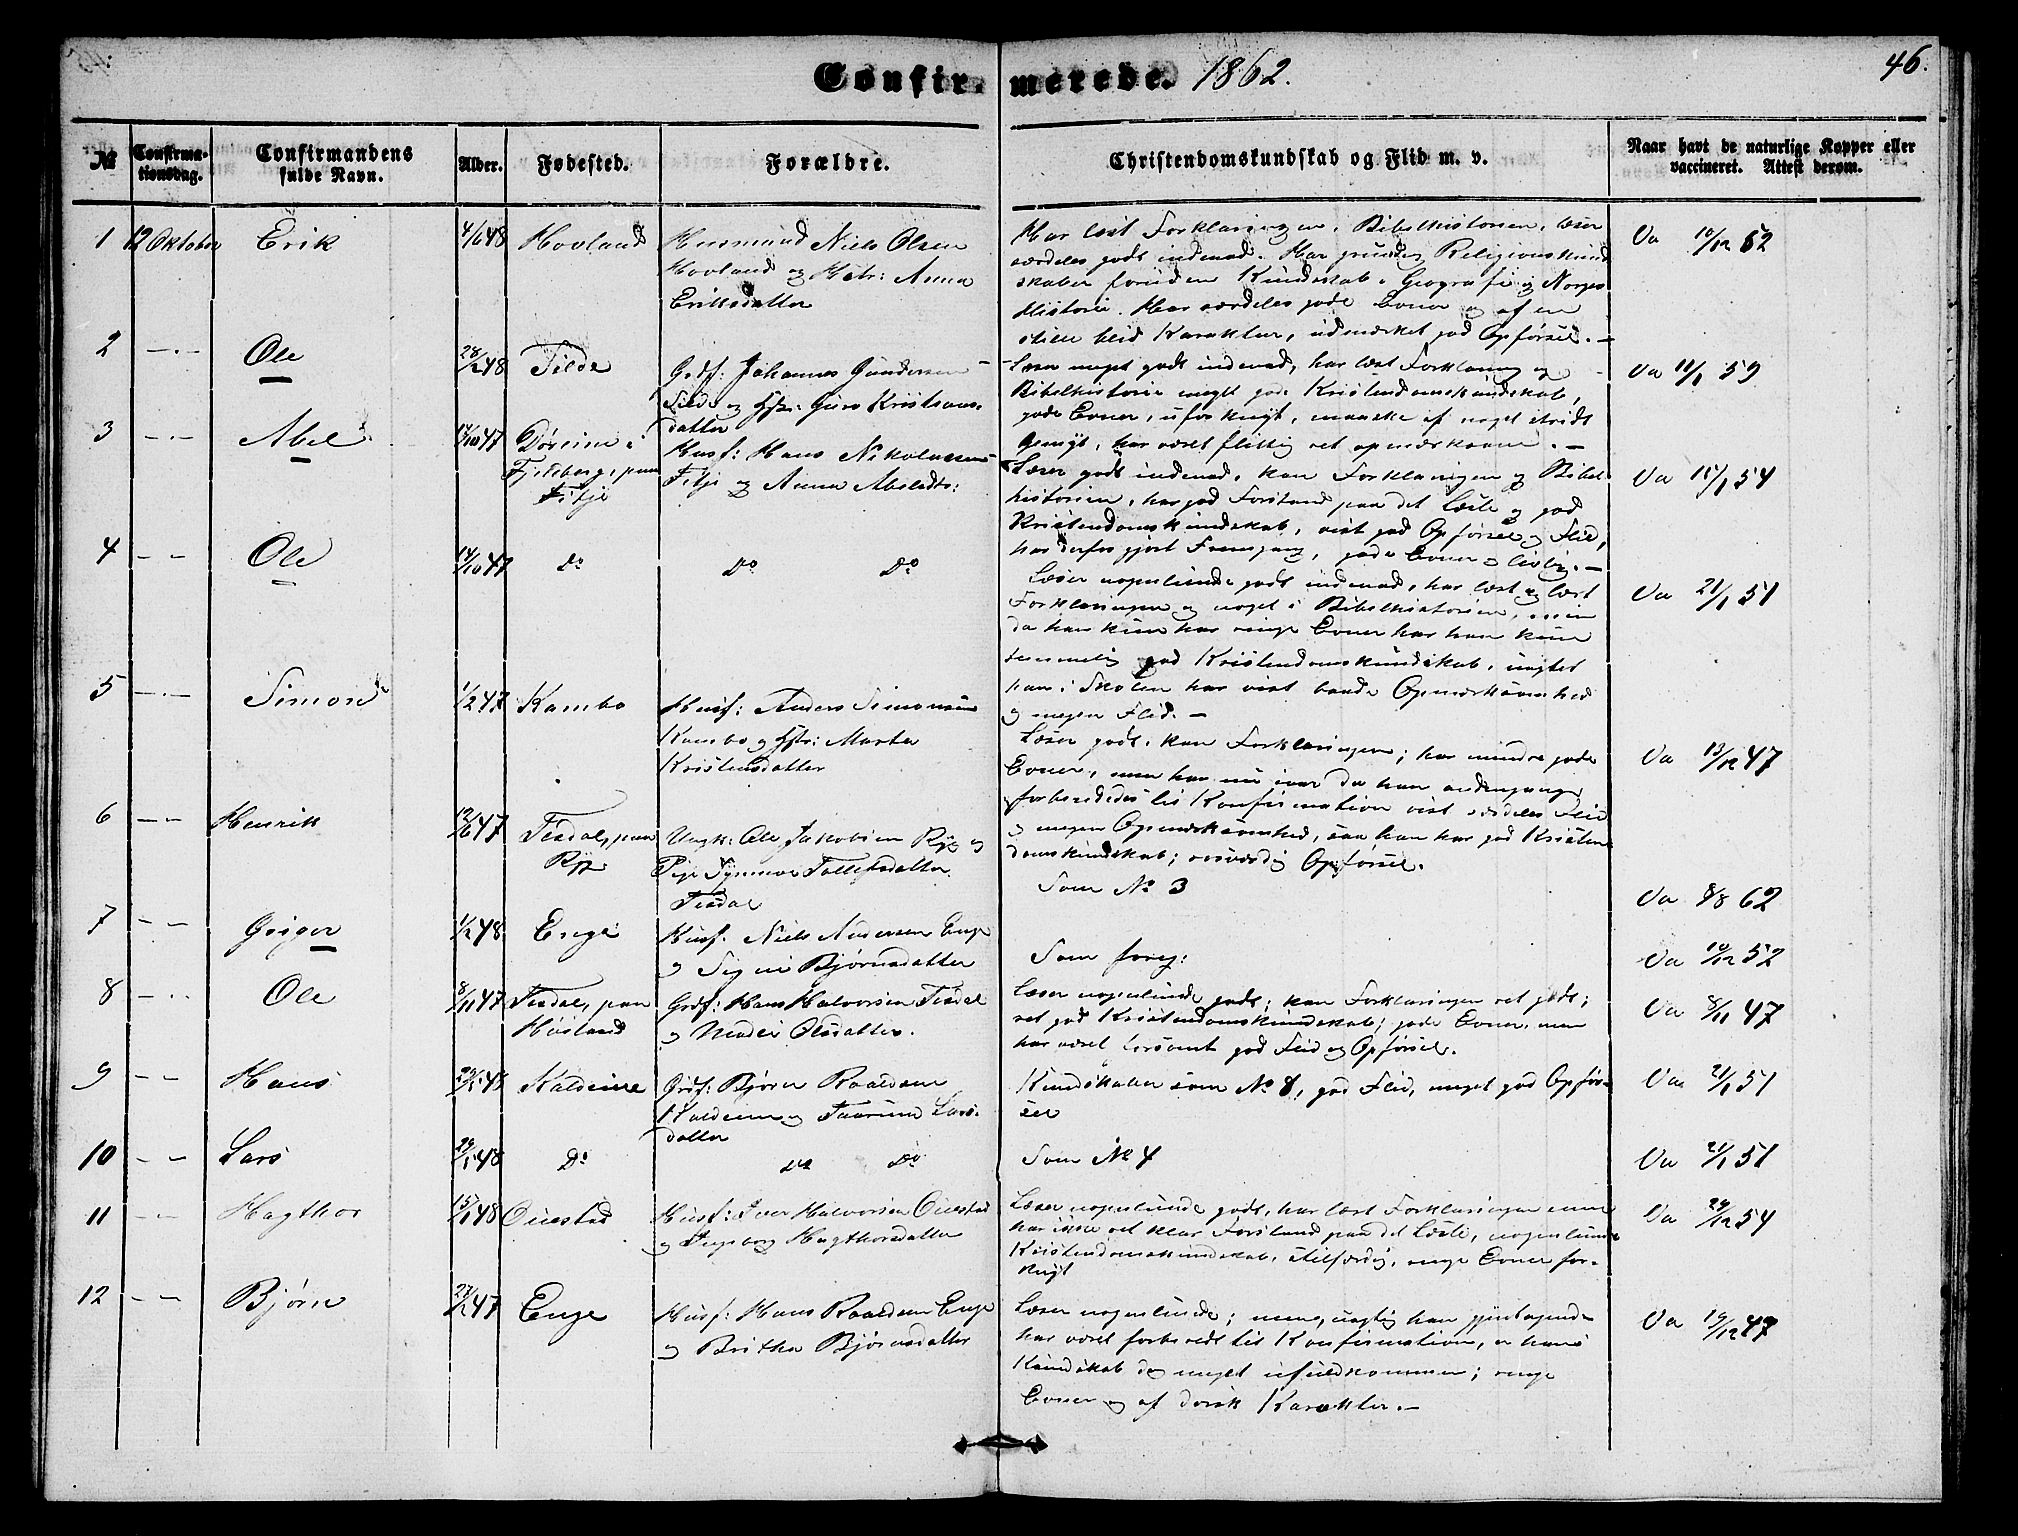 Confirmerede. 1862.
46.
№
Confirmationsdag.
Confirmandens fulde Navn.
Alder.
Fødested.
Forældre.
Christendomskundskab og Flid m. v.
Naar havt de naturlige Kopper eller vaccineret. Attest derom.
1 12 Oktober Erik 4/6 48 Hovland Husmand Niels Olsen
Hovland og Anna
Eriksdatter
Har læst Forklaringen, Bibelhistorien, læser
særdeles godt indenad. Har Religionskund
skaber foruden Kundskab i Geografi og Norges
Historie. Har særdeles gode Evner og af en
stille blid Karakter, udmærket god Opførsel. —
Va 10/12 52
2 Ole 28/2 48 Tilde Grdf: Johannes Gundersen
Tilde og Hstr: Guro Kristians-
datter
Læser meget godt indenad, har læst Forklaring og
Bibelhistorie meget god Kristendomskundskab,
gode Evner, uforknyt, maaske af noget stridt
Gemyt, har været flittig ret opmærksom. —
Va 11/1 59
3 Abel 14/10 47 Døsseim i
Fjelberg, paa
Fitje
Husf: Hans Nikolausen
Fitje og Anna Abelsdtr:
Læser godt indenad, kan Forklaringen og Bibel
historien, har god Forstand paa det Læste og god
Kristendomskundskab, vist god Opførsel og Flid,
har derfor gjort Fremgang, gode Evner og livlig. —
Va 15/1 54
4 Ole 14/10 47 Do Do Do
Læser nogenlunde godt indenad, har læst og lært
Forklaringen og noget i Bibelhistorien, men
da han kun har ringe Evner har han kun
temmelig god Kristendomskundskab, uagtet
han i Skolen har vist baade Opmærksomhed
og megen Flid. —
Va 21/1 51
5 Simon 1/2 47 Kambo Husf: Anders Simonsen
Kambo og Hstr: Marta
Kristensdatter
Læser godt, kan Forklaringen; har mindre gode
Evner, men har nu iaar da han andengang
forberededes til Konfirmation vist særdeles Flid
og megen Opmærksomhed, saa han har god Kristen
domskundskab; rosværdig Opførsel.
Va 13/12 47
6 Henrik 12/6 47 Tisdal, paa
Ryg
Ungk: Ole Jakobsen Ryg og
Pige Synneve Tollefsdatter
Tisdal
Som № 3
Va 8/8 62
7 Greger 1/2 48 Enge Husf. Niels Andersen Enge
og Signi Bjørnsdatter
Som foreg:
Va 10/12 52
8 Ole 8/11 47 Tisdal, paa
Høiland
Grdf: Hans Halvorsen Tisdal
og Olsdatter.
Læser nogenlunde godt; kan Forklaringen ret godt;
ret god Kristendomskundskab; gode Evner, men
har været god Flid og Opførsel.
Va 8/11 47
9 Hans Kaldeim Grdf: Bjørn Roaldsen
Kaldeim og Taarunn Lars-
datter
Kundskaber som № 8, god Flid, meget god Opfør-
sel
Va 21/1 51
10 Lars 29/1 48 Do Do Do
Som № 4
Va 21/1 51
11 Hagthor 15/1 48 Ouestad Husf: Iver Halvorsen Ouestad
og Ingeborg Hagthorsdatter
Læser nogenlunde godt, har læst Forklaringen men
har ikke ret klar Forstand paa det Læste, nogenlunde
Kristendomskundskab, stilfærdig, ringe Evner for-
knyt
Va 29/12 54
12 Bjørn 27/2 47 Enge Husf: Hans Roaldsen Enge
og Britha Bjørnsdatter
Læser nogenlunde; men, uagtet han gjentagende
har været forberedt til Konfirmation, er hans
Kundskab dog meget ufuldkommen; ringe
Evner og af dorsk Karakter. —
Va 19/12 47